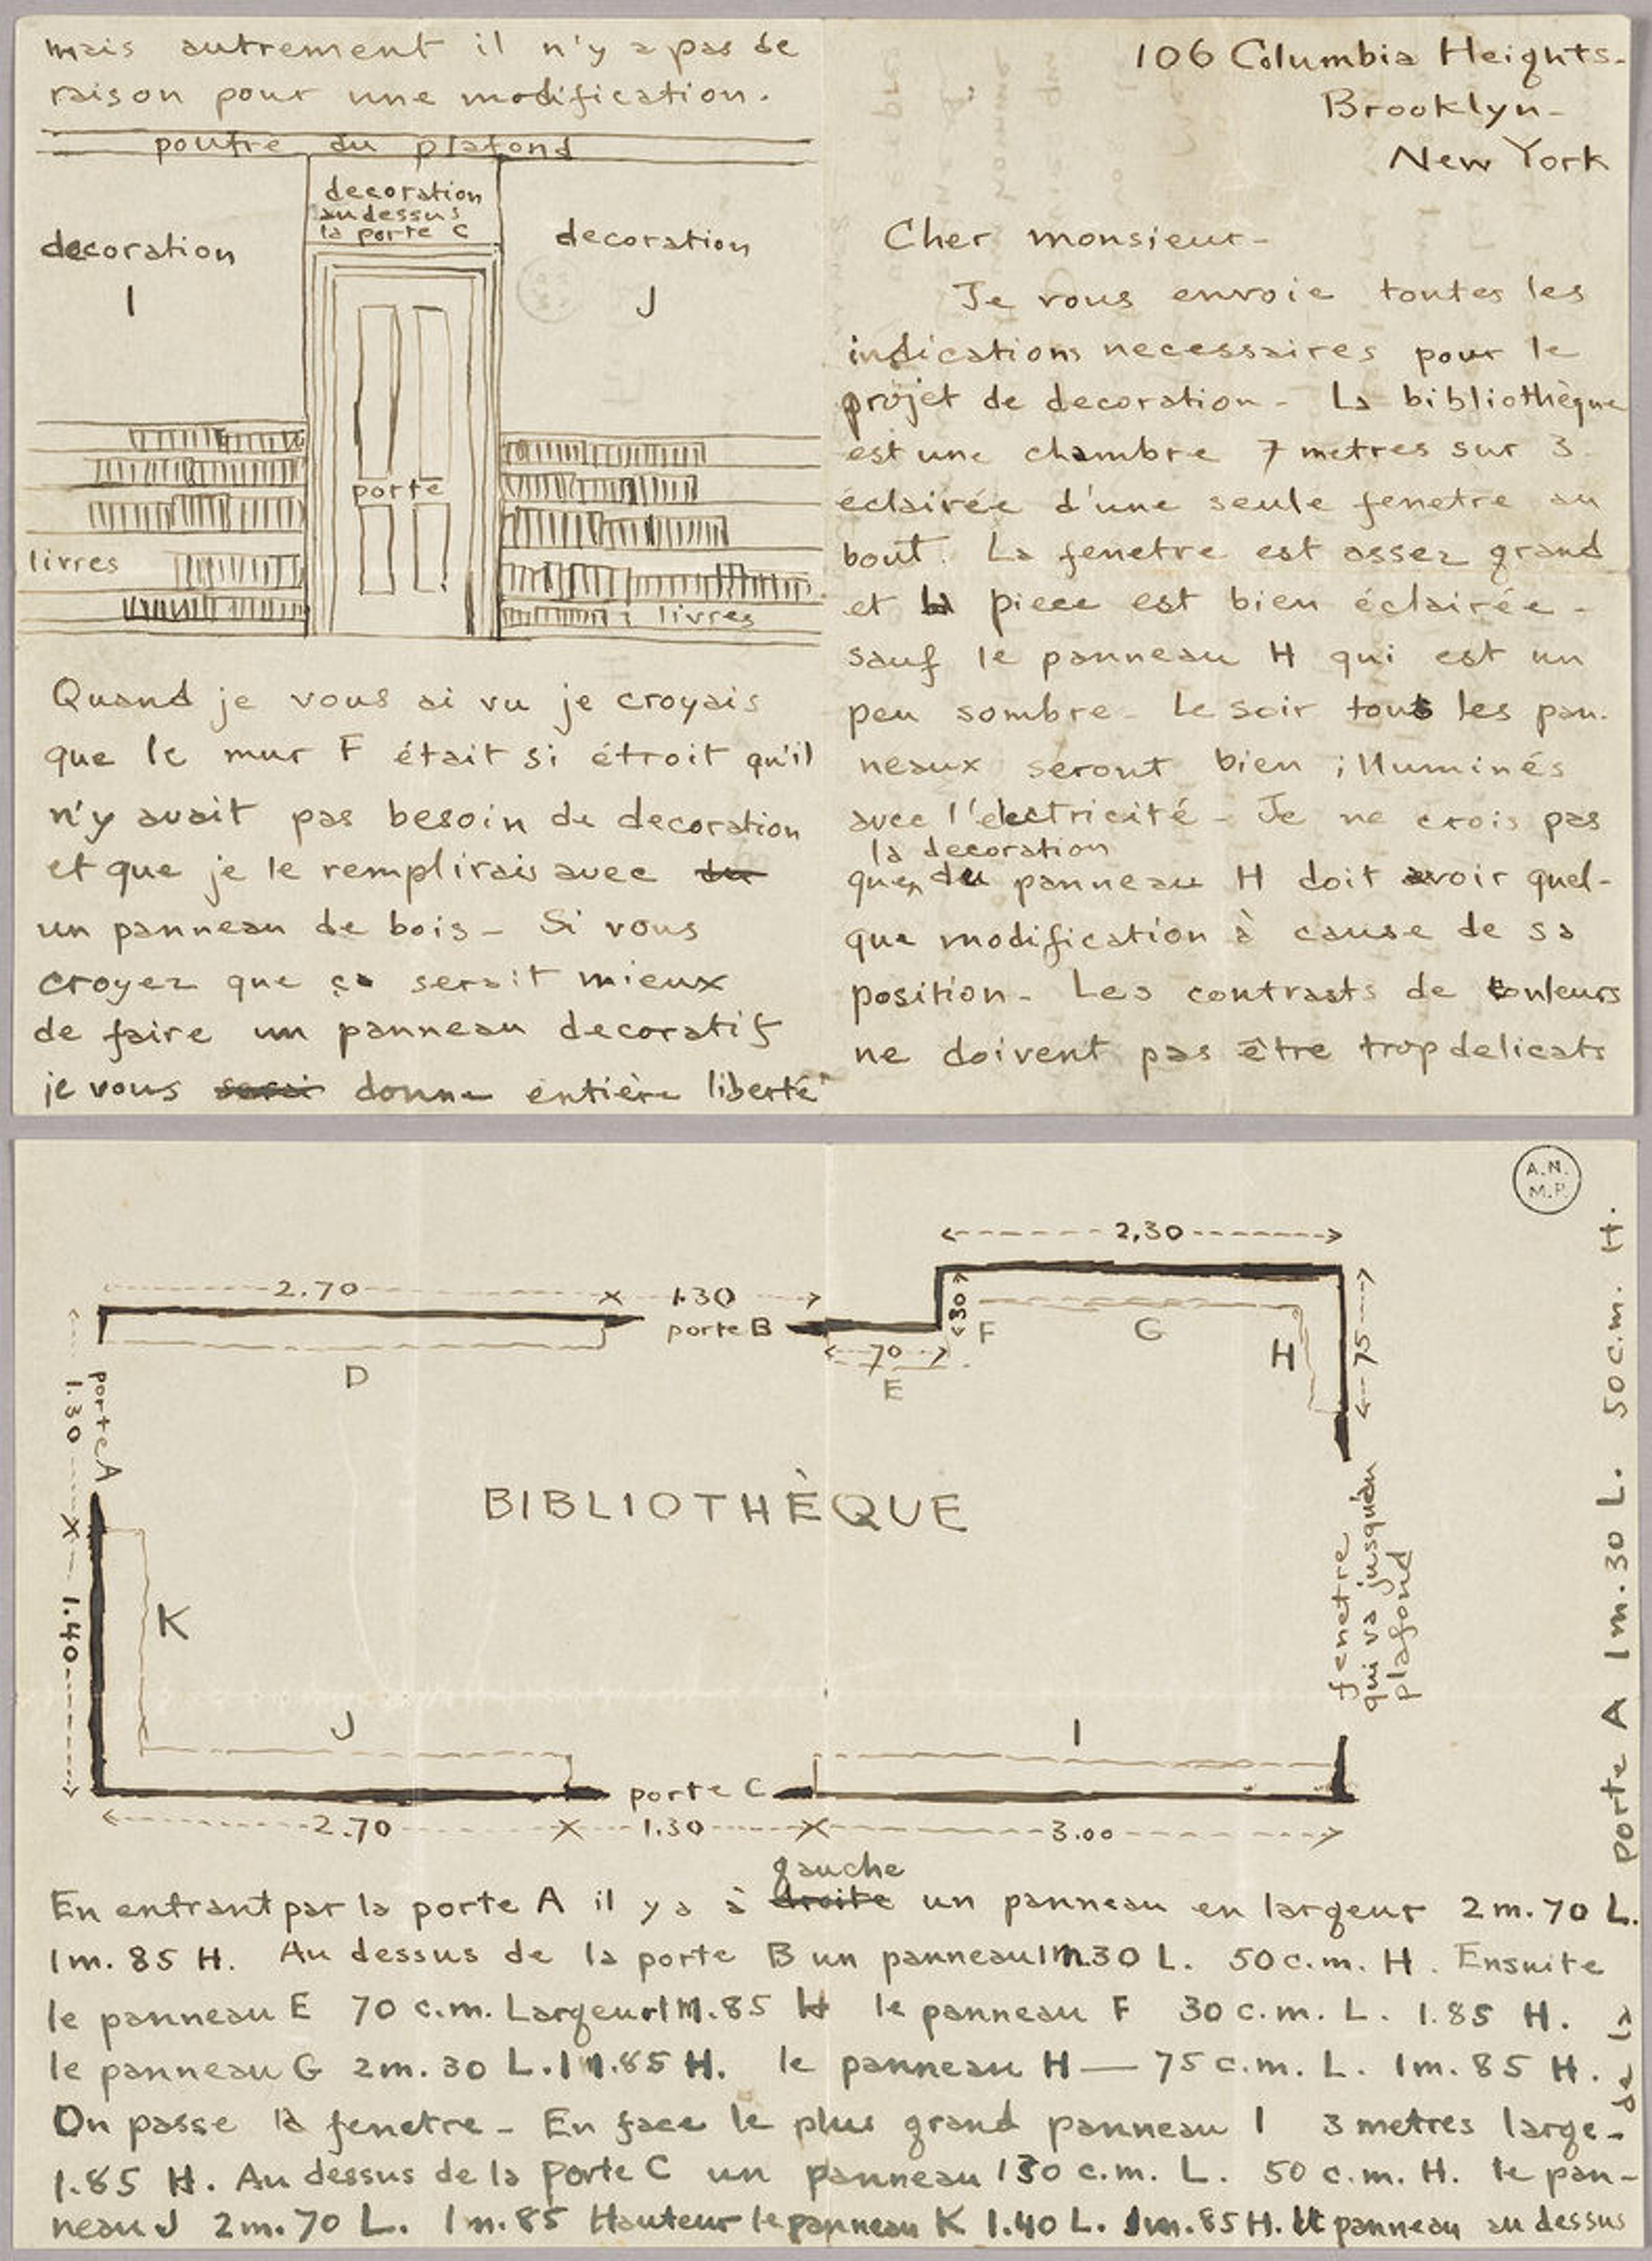 106 Columbia Heights-
Brooklyn-
New York
Cher monsieur-
Je vous envoie toutes les
indications necessaires pour le
projet de decoration - La bibliothèque
est une chambre 7 metres sur 3
éclairée d'une seule fenetre au
bout. La fenetre est assez grand
et la piece est bien éclairée -
sauf le panneau H qui est un
peu sombre - Le soir tous les pan-
neaux seront bien illuminés
avec l'electricité - Je ne crois pas
la decoration
que du panneau H doit avoir quel-
que modification à cause de sa
position - Les contrasts de couleurs
ne doivent pas être trop delicats
mais autrement il n'y a pas de
raison pour une modification.
poutre du plafond
decoration
au dessus
la porte C
decoration
I
decoration
J
porte
livres
livres
Quand je vous ai vu je croyais
que le mur F était si étroit qu'il
n'y avait pas besoin de decoration
et que je le remplirais avec du
un panneau de bois - Si vous
croyez que ça serait mieux
de faire un panneau decoratif
je vous donne entière liberté
A.N.
M.P.
2,30
2.70
1.30
porte B
30
F
G
H
75
70
E
D
1.30
porte A
BIBLIOTHÈQUE
fenetre
qui va jusqu'au
plafond
1.40
K
J
I
porte C
2.70
1.30
3.00
gauche
En entrant par la porte A il y a à droite un panneau en largeur 2 m. 70 L.
1m. 85 H. Au dessus de la porte B un panneau 1m.30 L. 50 c.m. H. Ensuite
le panneau E 70 c.m. Largeur 1m.85 H le panneau F 30 c.m. L. 1.85 H.
le panneau G 2m. 30 L. 1m.85 H. le panneau H — 75 c.m. L. 1m. 85 H.
On passe la fenetre - En face le plus grand panneau I 3 metres large-
1.85 H. Au dessus de la porte C un panneau 130 c.m. L. 50 c.m. H. le pan-
neau J 2m. 70 L. 1m. 85 Hauteur le panneau K 1.40 L. 1m. 85 H. Le panneau au dessus
de la porte A 1m. 30 L. 50 c.m. H.